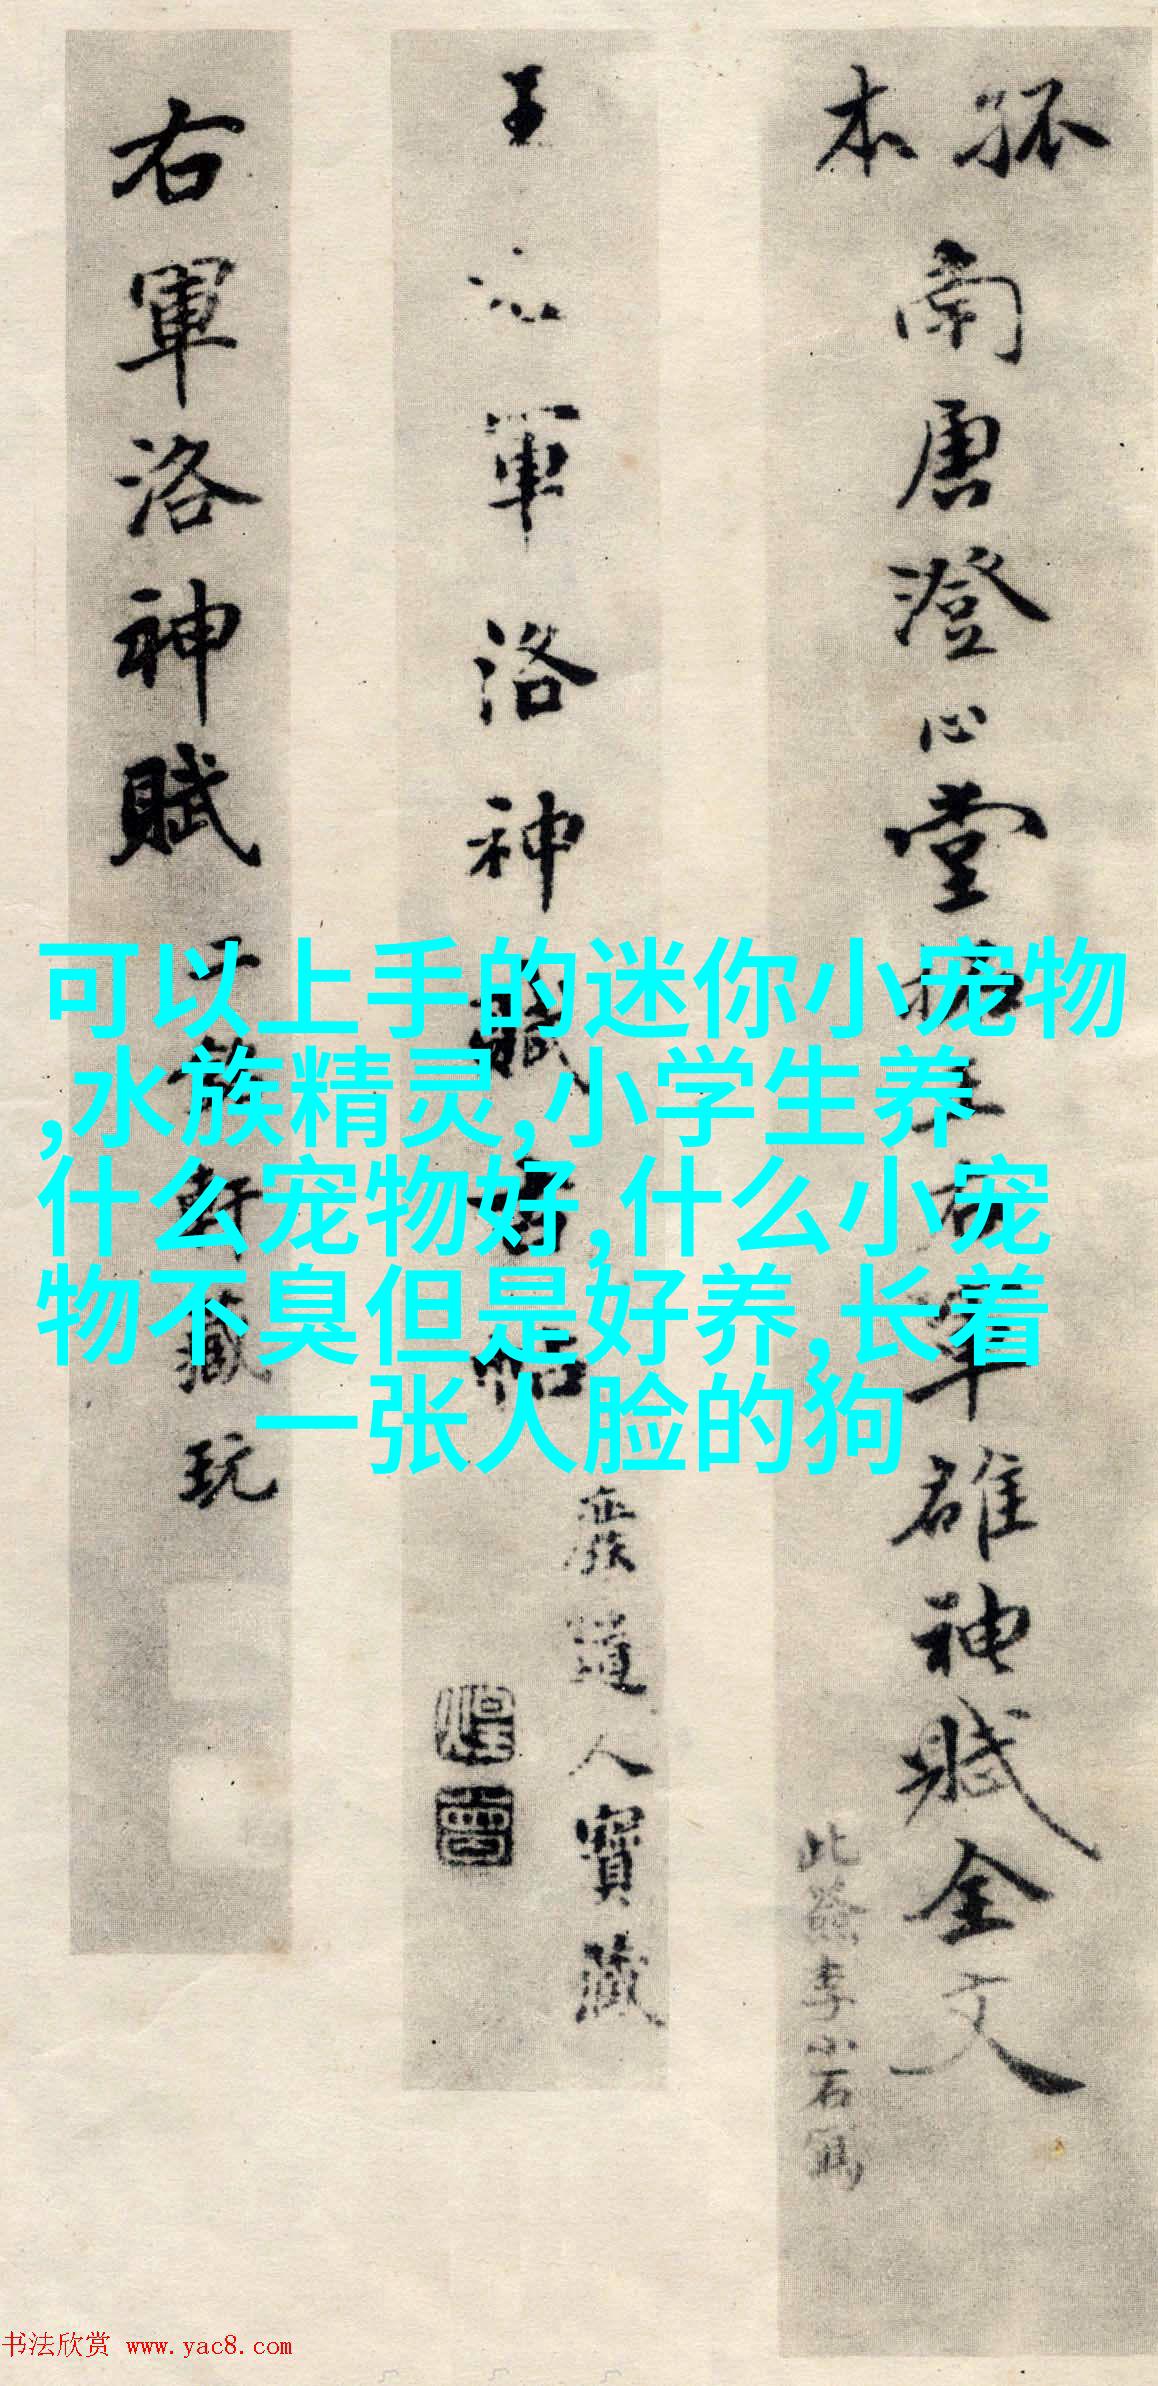 孤本
南唐澄心堂拓王右军雒神赋全文
此签李小石写
王右軍洛神賦
道人寶藏
右軍洛神賦
軒藏玩
可以上手的迷你小宠物
,水族精灵,小学生养
什么宠物好,什么小宠
物不臭但是好养,长着
一张人脸的狗
书法欣赏 www.yac8.com